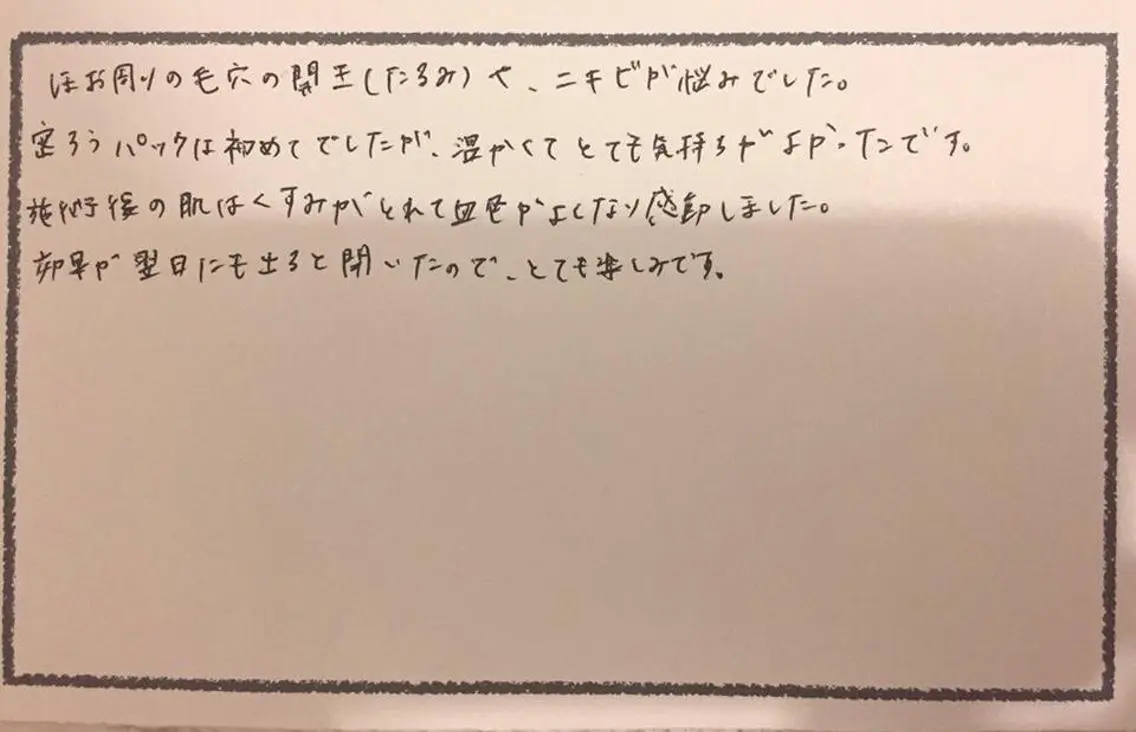 ほお周りの毛穴の開き(たるみ)や、ニキビが悩みでした。
密ろうパックは初めてでしたが、温かくてとても気持ちがよかったです。
施術後の肌はくすみがとれて血色がよくなり感動しました。
効果が翌日にも出ると聞いたので、とても楽しみです。